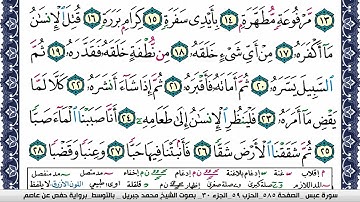 ﴿١٣﴾ مَّرْفُوعَةٍ مُّطَهَّرَةٍ ﴿١٤﴾ بِأَيْدِى سَفَرَةٍ ﴿١٥﴾ كِرَامٍ بَرَرَةٍ ﴿١٦﴾ قُتِلَ ٱلْإِنسَٰنُ
مَآ أَكْفَرَهُۥ ﴿١٧﴾ مِنْ أَىِّ شَىْءٍ خَلَقَهُۥ ﴿١٨﴾ مِن نُّطْفَةٍ خَلَقَهُۥ فَقَدَّرَهُۥ ﴿١٩﴾ ثُمَّ
ٱلسَّبِيلَ يَسَّرَهُۥ ﴿٢٠﴾ ثُمَّ أَمَاتَهُۥ فَأَقْبَرَهُۥ ﴿٢١﴾ ثُمَّ إِذَا شَآءَ أَنشَرَهُۥ ﴿٢٢﴾ كَلَّا لَمَّا
يَقْضِ مَآ أَمَرَهُۥ ﴿٢٣﴾ فَلْيَنظُرِ ٱلْإِنسَٰنُ إِلَىٰ طَعَامِهِۦٓ ﴿٢٤﴾ أَنَّا صَبَبْنَا ٱلْمَآءَ صَبًّا
﴿٢٥﴾ ثُمَّ شَقَقْنَا ٱلْأَرْضَ شَقًّا ﴿٢٦﴾ فَأَنۢبَتْنَا فِيهَا حَبًّا ﴿٢٧﴾ وَعِنَبًا وَقَضْبًا ﴿٢٨﴾
سورة عبس الصفحة ٥٨٥ الحزب ٥٩ الجزء ٣٠ بصوت الشيخ محمد جبريل بالتوسط برواية حفص عن عاصم